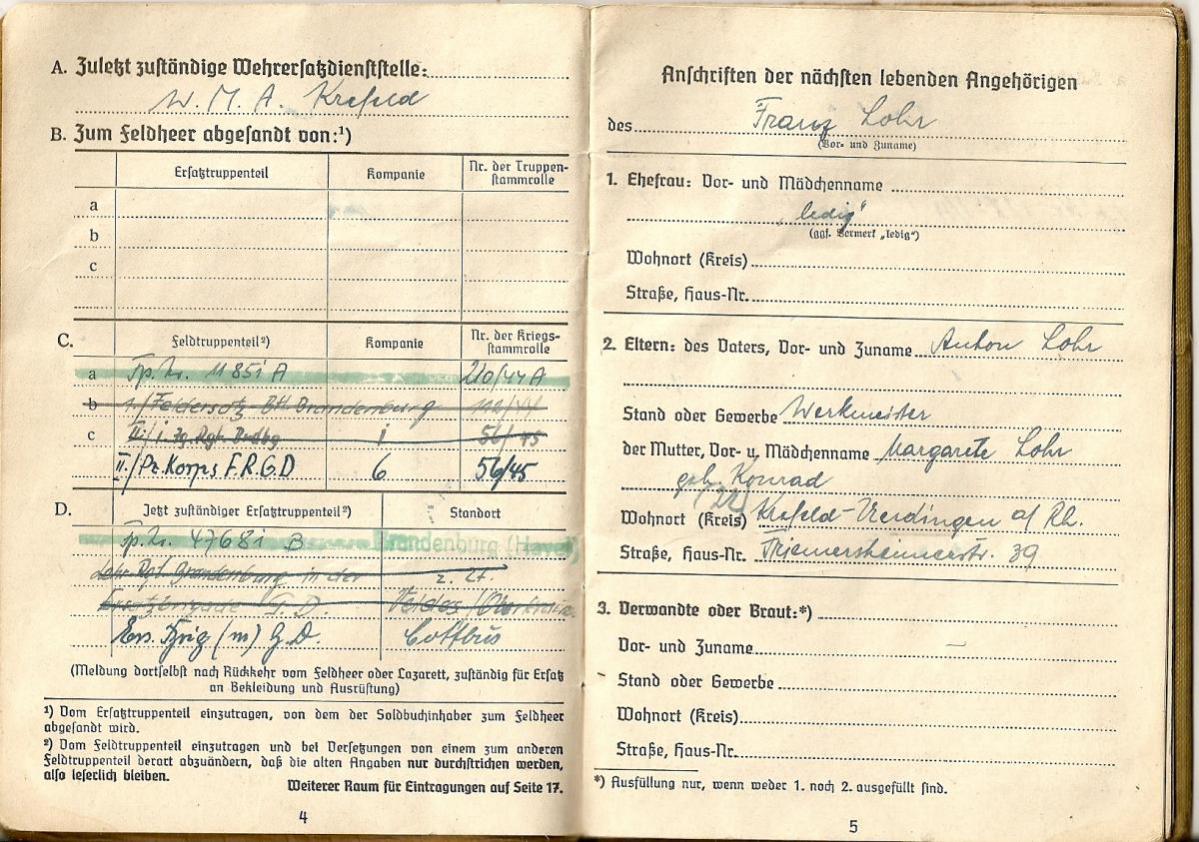 A. Zuletzt zuständige Wehrersatzdienststelle:
W. M. A. Krefeld
B. Zum Feldheer abgesandt von:¹)
Ersatztruppenteil Kompanie Nr. der Truppenstammrolle
a
b
c
C. Feldtruppenteil²) Kompanie Nr. der Kriegsstammrolle
a Fp. Nr. 11851 A 210/44 A
b 1./Feldersatz Btl. Brandenburg
c 56/45
II./Pz. Korps F.R.G.D 6 56/45
D. Jetzt zuständiger Ersatztruppenteil²) Standort
Fp. Nr. 47681 B Brandenburg (Havel)
Lehr-Rgt. Brandenburg in der z. Zt.
Ersatzbrigade G. D.
Ers. Brig (m) G.D. Cottbus
(Meldung dortselbst nach Rückkehr vom Feldheer oder Lazarett, zuständig für Ersatz
an Bekleidung und Ausrüstung)
¹) Vom Ersatztruppenteil einzutragen, von dem der Soldbuchinhaber zum Feldheer
abgesandt wird.
²) Vom Feldtruppenteil einzutragen und bei Versetzungen von einem zum anderen
Feldtruppenteil derart abzuändern, daß die alten Angaben nur durchstrichen werden,
also leserlich bleiben.
Weiterer Raum für Eintragungen auf Seite 17.
4
Anschriften der nächsten lebenden Angehörigen
des Franz Lohr
(Vor- und Zuname)
1. Ehefrau: Vor- und Mädchenname
„ledig"
(ggf. Vermerk „ledig")
Wohnort (Kreis)
Straße, Haus-Nr.
2. Eltern: des Vaters, Vor- und Zuname Anton Lohr
Stand oder Gewerbe Werkmeister
der Mutter, Vor- u. Mädchenname Margarete Lohr
geb. Konrad
(22)
Wohnort (Kreis) Krefeld-Uerdingen a/ Rh.
Straße, Haus-Nr. 39
3. Verwandte oder Braut:*)
Vor- und Zuname –
Stand oder Gewerbe
Wohnort (Kreis)
Straße, Haus-Nr.
*) Ausfüllung nur, wenn weder 1. noch 2. ausgefüllt sind.
5